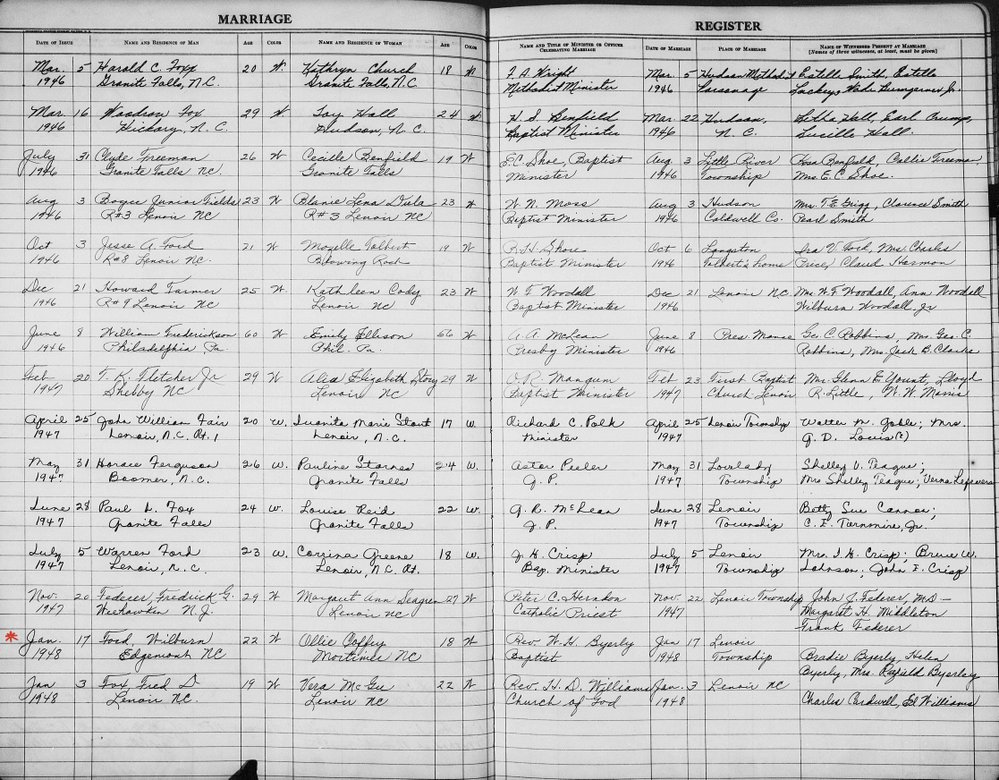 MARRIAGE
DATE OF ISSUE NAME AND RESIDENCE OF MAN AGE COLOR NAME AND RESIDENCE OF WOMAN AGE COLOR
Mar. 5 Harold C. Fox 20 W. Kathryn Church 18 W
1946 Granite Falls, N.C. Granite Falls, N.C.
Mar. 16 Woodrow Fox 29 W Fay Hall 24 W
1946 Hickory, N.C. Hudson, N.C.
July 31 Clyde Freeman 26 W Cecille Benfield 19 W
1946 Granite Falls NC. Granite Falls
Aug 3 Boyce Junior Fields 23 W Blanie Lena Dula 23 W
1946 R#3 Lenoir NC R#3 Lenoir NC
Oct 3 Jesse A. Ford 21 W Mozelle Tolbert 19 W
1946 R#8 Lenoir NC Blowing Rock
Dec 21 Howard Farmer 25 W Kathleen Cody 23 W
1946 R#9 Lenoir NC Lenoir NC
June 8 William Frederickson 60 W Emily Ellison 56 W
1946 Philadelphia Pa. Phil. Pa.
Feb 20 T. K. Fletcher Jr 29 W Alice Elizabeth Story 29 W
1947 Shelby NC Lenoir NC
April 25 John William Fair 20 W. Juanita Marie Stout 17 W
1947 Lenoir, N.C. Rt. 1 Lenoir, N.C.
May 31 Horace Ferguson 26 W. Pauline Starnes 24 W.
1947 Boomer, N.C. Granite Falls
June 28 Paul L. Fox 24 W. Louise Reid 22 W.
1947 Granite Falls Granite Falls
July 5 Warren Ford 23 W. Corrina Greene 18 W.
1947 Lenoir, N.C. Lenoir, N.C. Rt.
Nov. 20 Federer, Fredrick G. 29 W Margaret Ann Seagren 27 W
1947 Weehawken N.J. Lenoir NC
* Jan. 17 Ford Wilburn 22 W Ollie Coffey 18 W
1948 Edgemont NC Mortimer NC
Jan 3 Fox Fred D 19 W Vera McGee 22 W
1948 Lenoir NC. Lenoir NC
REGISTER
NAME AND TITLE OF MINISTER OR OFFICER CELEBRATING MARRIAGE DATE OF MARRIAGE PLACE OF MARRIAGE NAMES OF WITNESSES PRESENT AT MARRIAGE (Names of three witnesses, at least, must be given)
F. A. Wright Mar. 5 Hudson Methodist Estelle Smith, Estelle
Methodist Minister 1946 Parsonage Lackey, Wade Bumgarner Jr.
H. S. Benfield Mar. 22 Hudson, Hall, Earl Crump,
Baptist Minister 1946 N.C. Lucille Hall.
E.C. Shoe, Baptist Aug 3 Little River Benfield, Callie Freeman,
Minister 1946 Township Mrs. E.C. Shoe.
W. N. Moss Aug 3 Hudson Mrs. T.E. Grigg, Clarence Smith
Baptist Minister 1946 Caldwell Co. Pearl Smith
R. H. Shore Oct 6 Langston Ira V. Ford, Mrs. Charles
Baptist Minister 1946 Tolbert's home Price, Claud Harmon
W F Woodall Dec 21 Lenoir NC Mrs. W. F. Woodall, Ann Woodall
Baptist Minister 1946 Wilburn Woodall, Jr
A. A. McLean June 8 Pres Manse Geo. C. Robbins, Mrs. Geo. C.
Presby Minister 1946 Robbins, Mrs. Jack B. Clarke
O.R. Mangum Feb 23 First Baptist Mr. Glenn E Yount, Lloyd
Baptist Minister 1947 Church Lenoir R. Little, W. W. Morris
Richard C. Polk April 25 Lenoir Township Walter M. Goble; Mrs.
Minister 1947 G. D. Louis(?)
Astor Peeler May 31 Lovelady Shelley V. Teague;
J. P. 1947 Township Mrs Shelley Teague; Verna Lefevers
G. R. McLean June 28 Lenoir Betty Sue Cannon;
J. P. 1947 Township C. E. Turnmire, Jr.
J. H. Crisp July 5 Lenoir Mrs. J. H. Crisp; Bruce W.
Bap. Minister 1947 Township Johnson; John F. Crisp
Peter C. Herndon Nov. 22 Lenoir Township John J. Federer, MD -
Catholic Priest 1947 Margaret H. Middleton
Frank Federer
Rev. W. G. Byerly Jan 17 Lenoir
Baptist 1948 Township Bradie Byerly, Helen
Byerly, Mrs. Byerley
Rev. H. D. Williams Jan. 3 Lenoir NC
Church of God 1948 Charles Cardwell, Williams